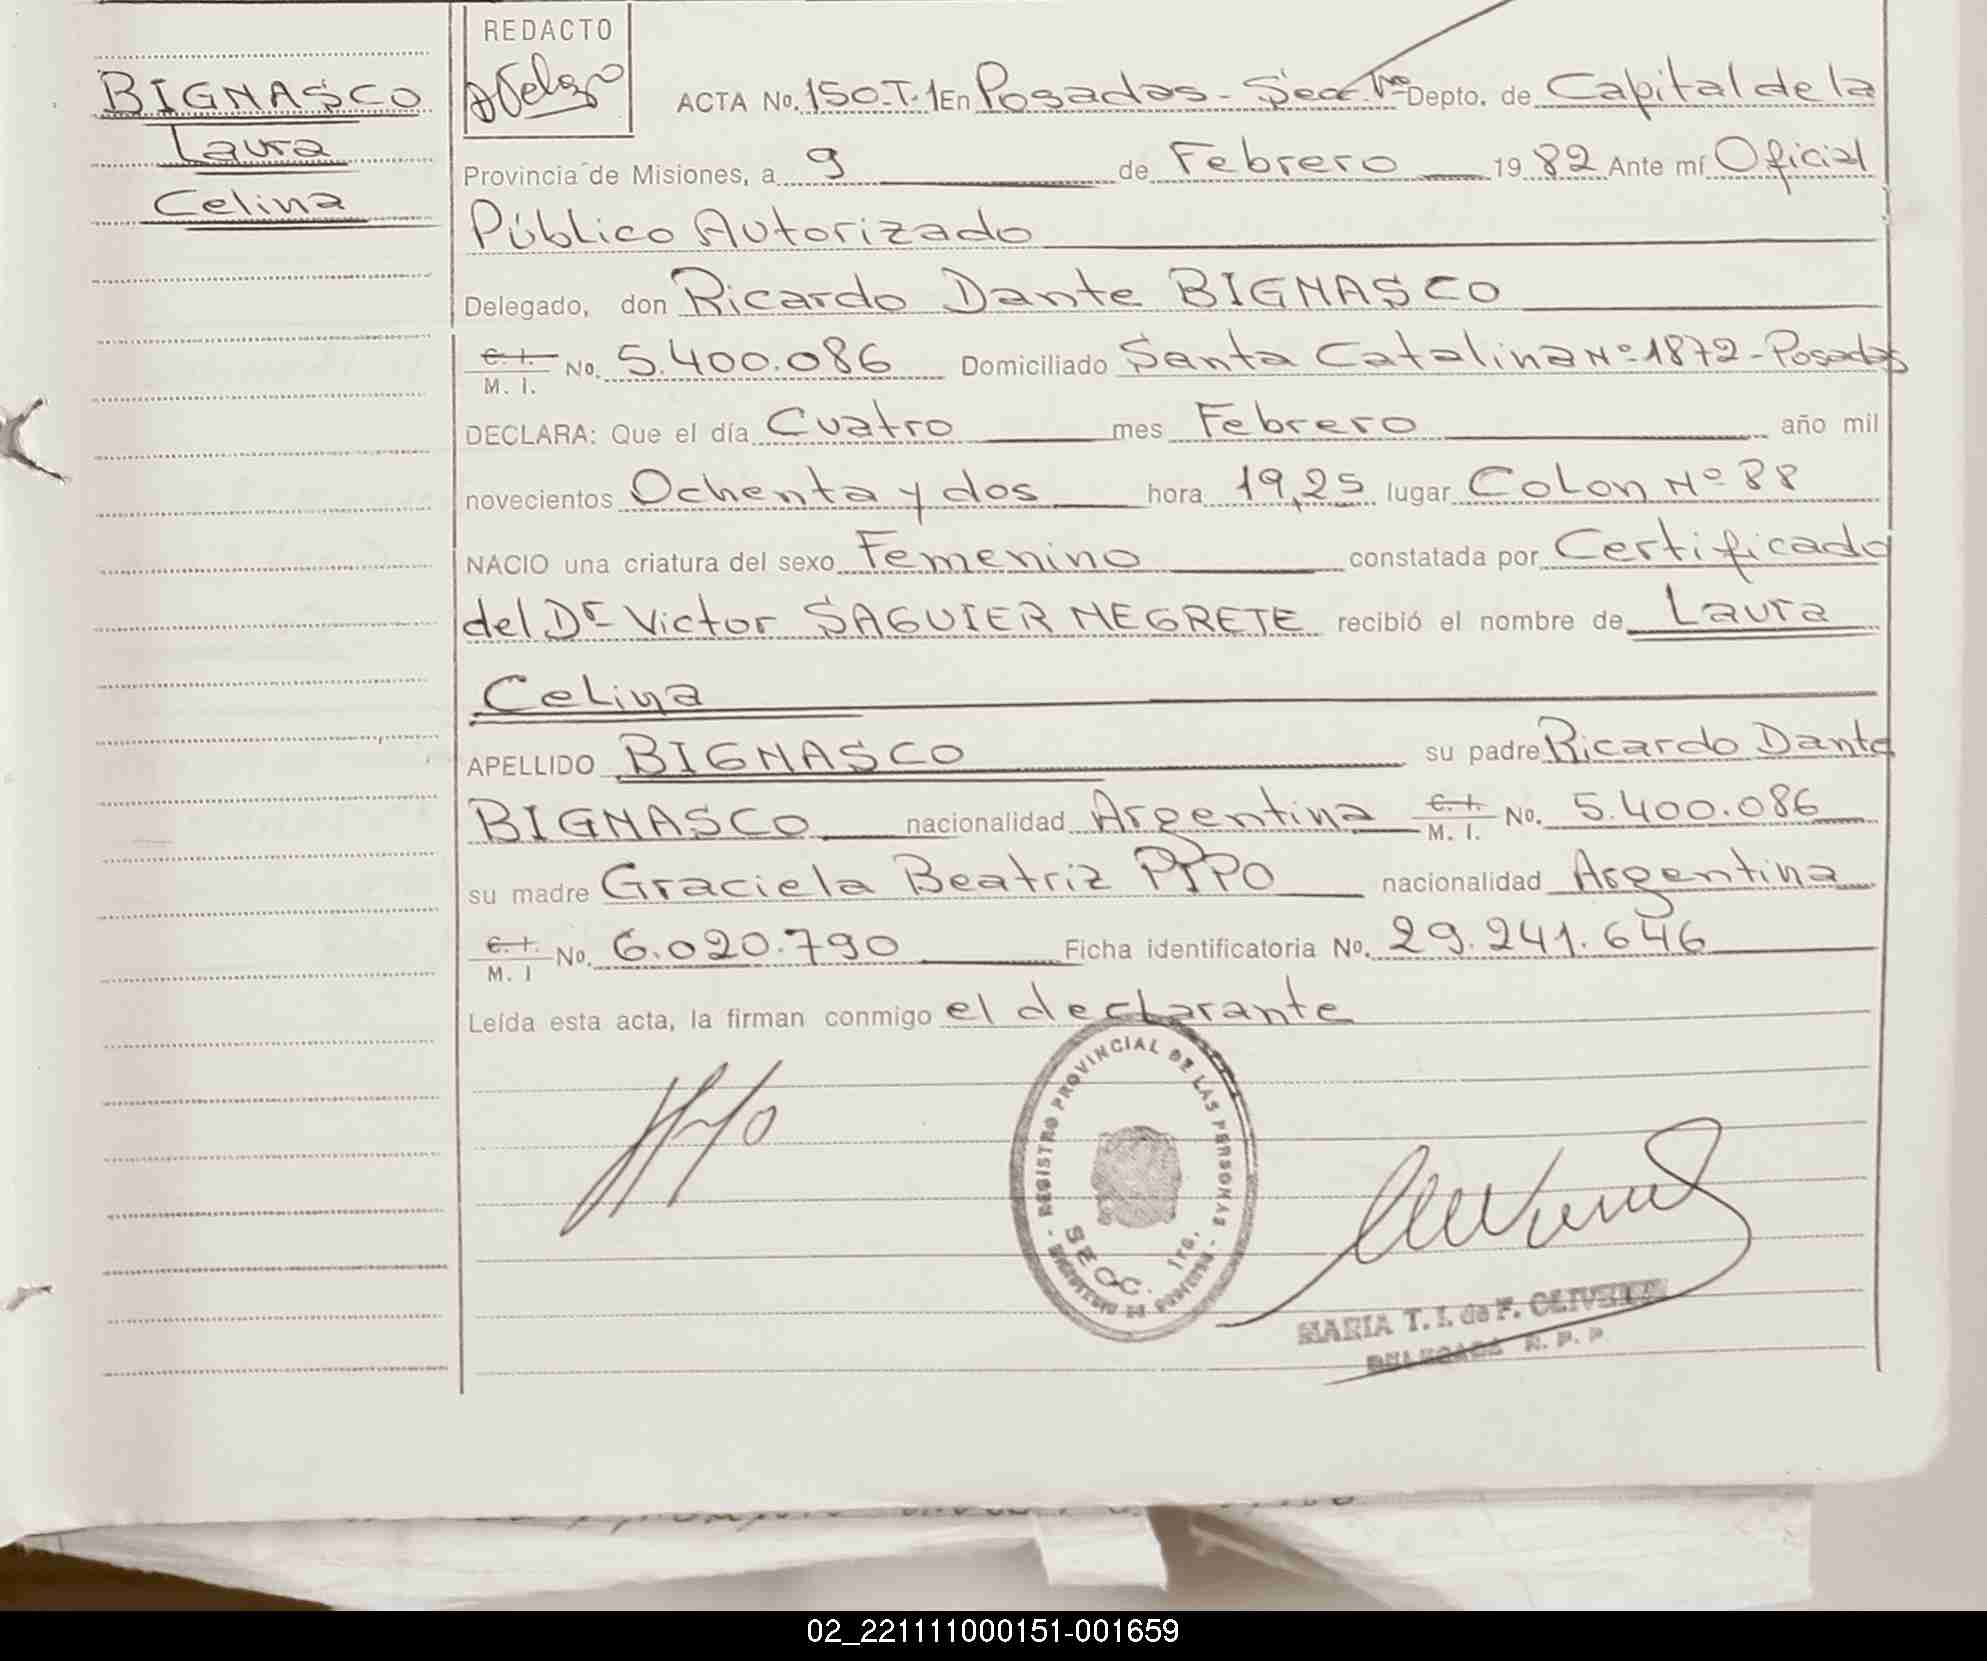 BIGNASCO
Laura
Celina
REDACTO
ACTA No. 150-T.1 En Posadas - Secc. 1ra Depto. de Capital de la
Provincia de Misiones, a 9 de Febrero 1982 Ante mí Oficial
Público Autorizado
Delegado, don Ricardo Dante BIGNASCO
C. I. M. I. No. 5.400.086 Domiciliado Santa Catalina Nº 1872 - Posadas
DECLARA: Que el día Cuatro mes Febrero año mil
novecientos Ochenta y dos hora 19,25 lugar Colon Nº 88
NACIO una criatura del sexo Femenino constatada por Certificado
del Dr Victor SAGUIER NEGRETE recibió el nombre de Laura
Celina
APELLIDO BIGNASCO su padre Ricardo Dante
BIGNASCO nacionalidad Argentina C. I. M. I. No. 5.400.086
su madre Graciela Beatriz PIPPO nacionalidad Argentina
C. I. M. I No. 6.020.790 Ficha identificatoria No. 29.241.646
Leída esta acta, la firman conmigo el declarante
REGISTRO PROVINCIAL DE LAS PERSONAS - MINISTERIO DE GOBIERNO -
SECC. 1ra.
MARIA T. I. de F. OLIVEIRA
DELEGADA R. P. P.
02_221111000151-001659